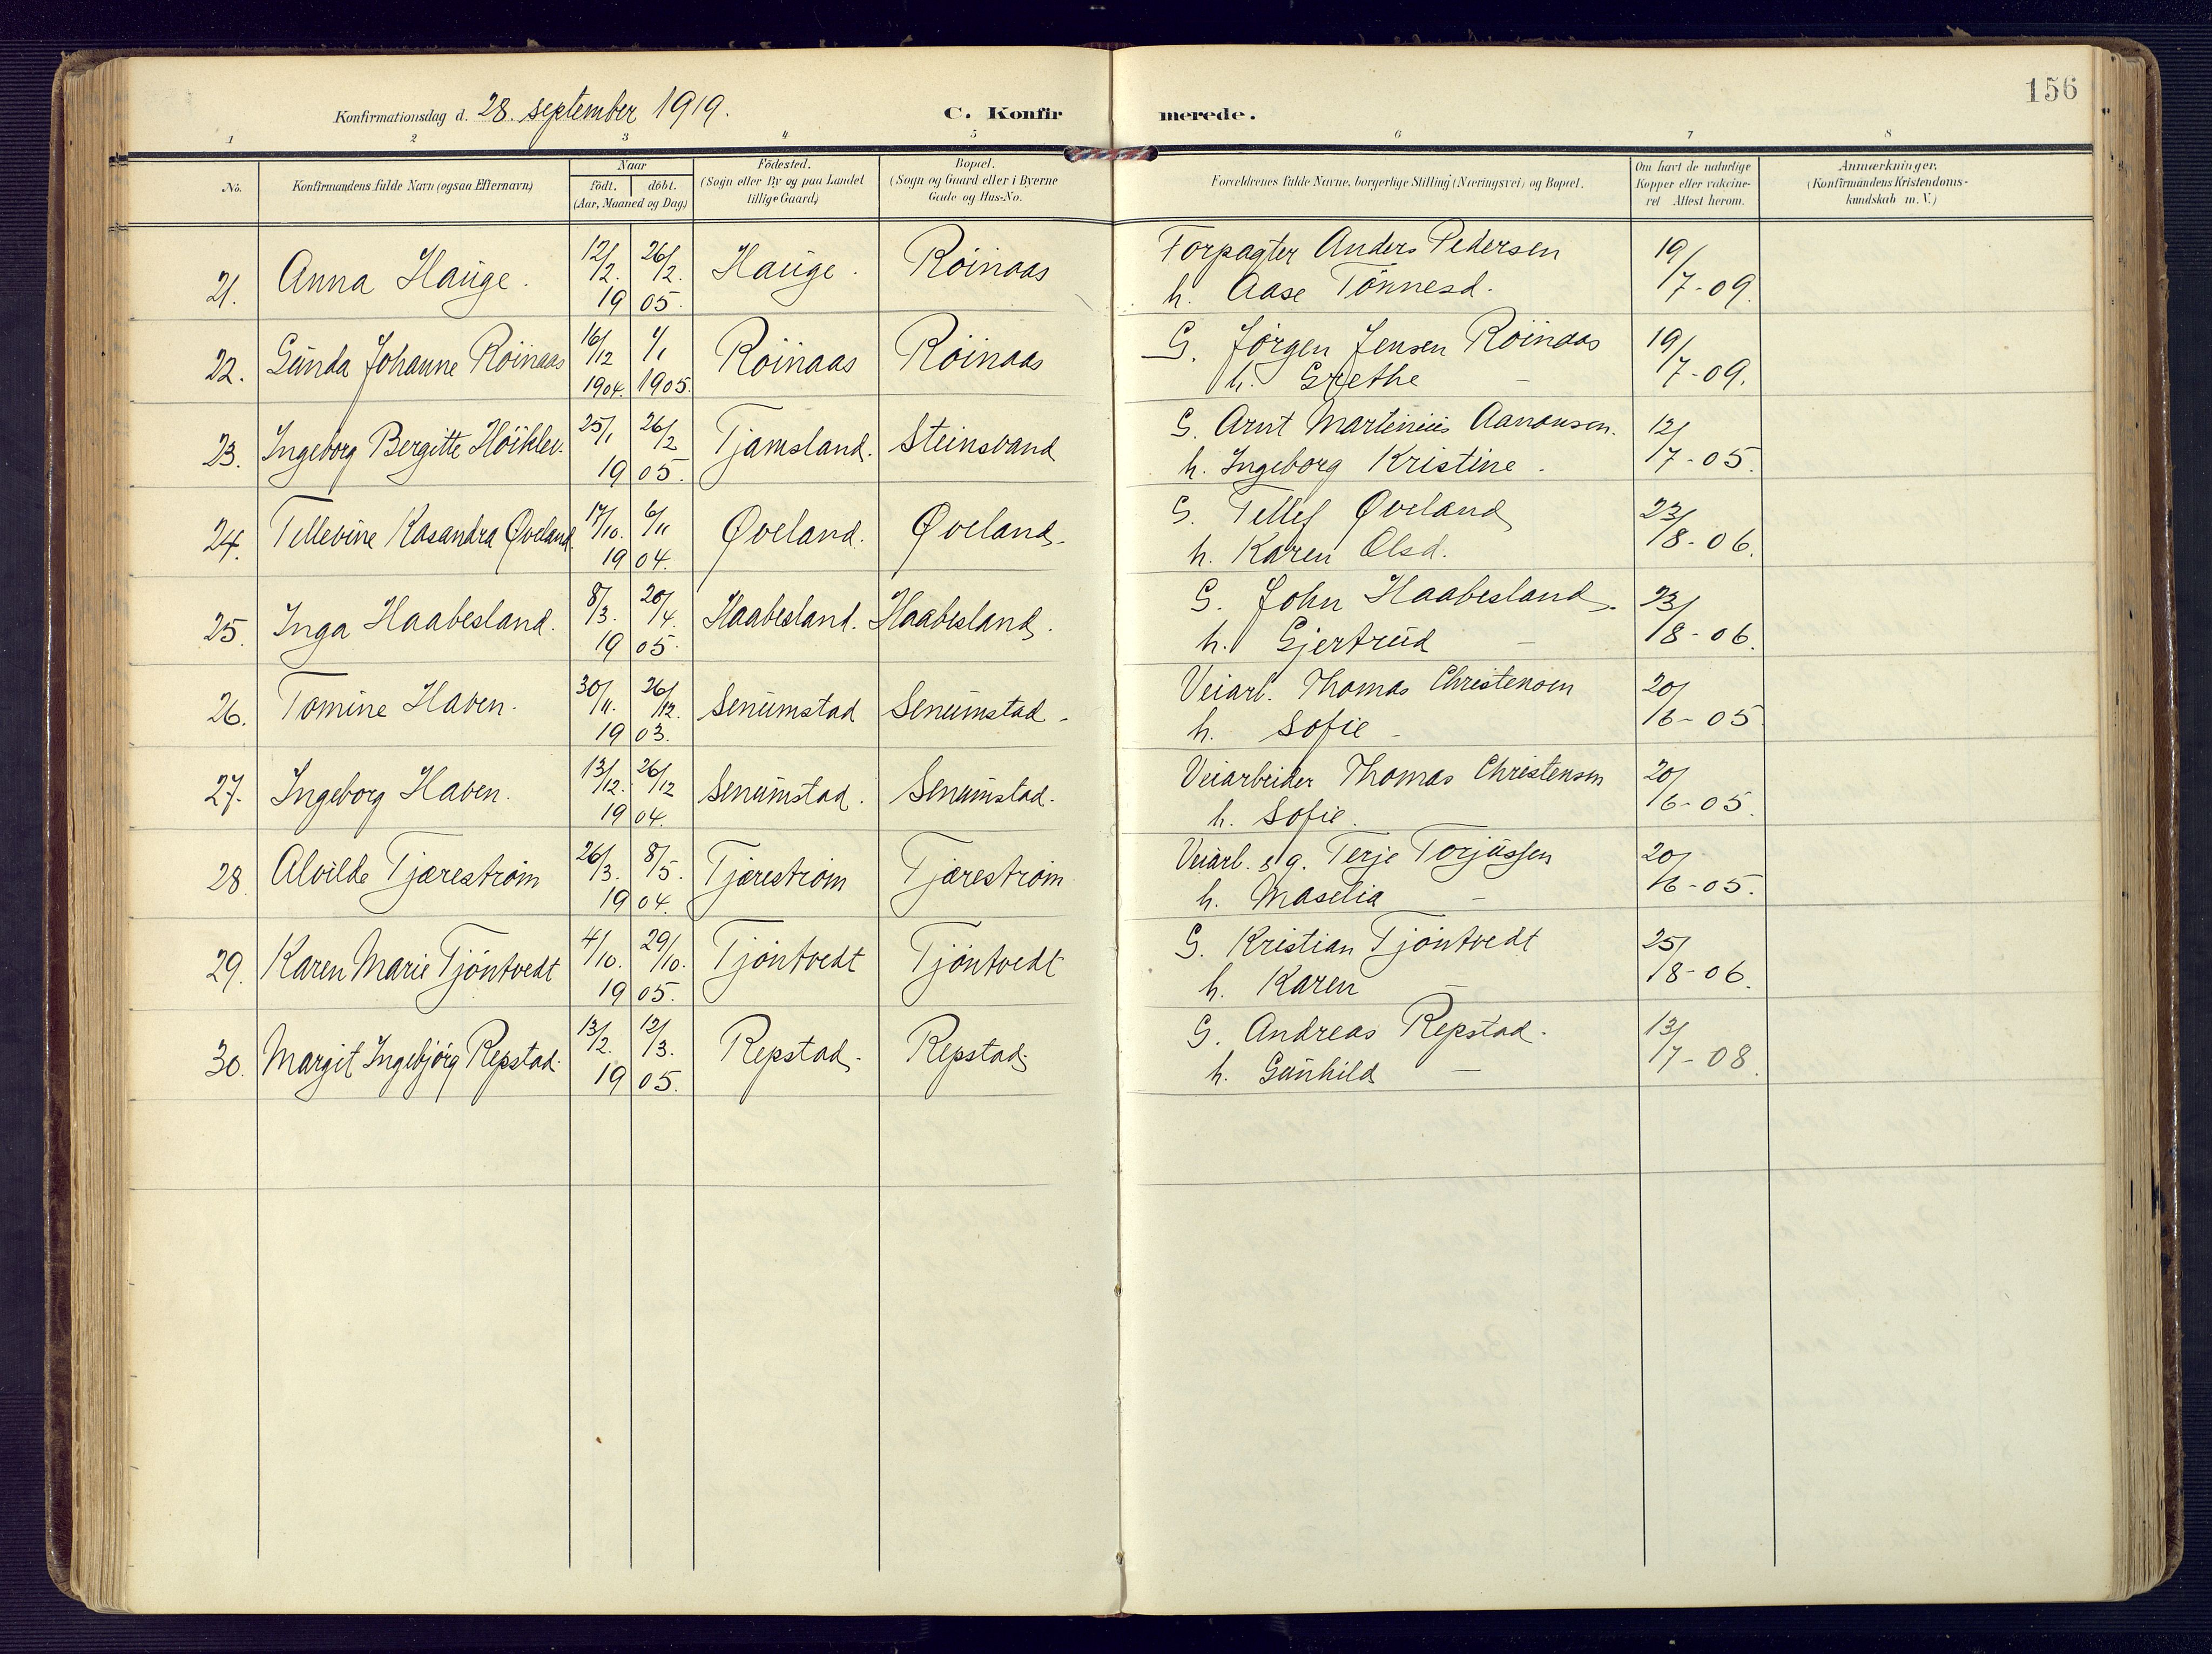 156
Konfirmationsdag d. 28. september 1919.
C. Konfirmerede.
1 2 3 4 5 6 7 8
No.
Konfirmandens fulde Navn (ogsaa Efternavn)
Naar
født. døbt.
(Aar, Maaned og Dag)
Fødested.
(Sogn eller By og paa Landet
tillige Gaard)
Bopæl.
(Sogn og Gaard eller i Byerne
Gade og Hus-No.
Forældrenes fulde Navne, borgerlige Stilling (Næringsvei) og Bopæl.
Om havt de naturlige
Kopper eller vakcine-
ret Attest herom.
Anmærkninger.
(Konfirmandens Kristendoms-
kundskab m. V.)
21. Anna Hauge. 12/2. 26/2. 1905. Hauge. Röinaas Forpagter Anders Pedersen 19/7-09.
h. Aase Tönnesd.
22. Gunda Johanne Röinaas 16/12 1904. 1/1 1905. Röinaas Röinaas G. Jörgen Jensen Röinaas 19/7-09.
h. Grethe –
23. Ingeborg Bergitte 25/1 26/2 1905. Tjamsland. Steinsvand G. Arnt Martinius Aanonsen. 12/7-05.
h. Ingeborg Kristine.
24. Tellevine Kasandra Øveland 17/10. 6/11 1904. Øveland. Øveland. G. Tellef Øveland 23/8-06.
h. Karen Olsd.
25. Inga Haabesland. 8/3. 20/4. 1905. Haabesland. Haabesland. G. John Haabesland. 23/8-06.
h. Gjertrud –
26. Tomine Haven. 30/11. 26/12. 1903. Senumstad Senumstad. Veiarb. Thomas Christensen 20/6-05
h. Sofie –
27. Ingeborg Haven. 13/12. 26/12 1904. Senumstad. Senumstad. Veiarbeider Thomas Christensen 20/6-05.
h. Sofie.
28 Alvilde Tjæreström 26/3. 8/5. 1904. Tjæreström Tjæreström Veiarb. s g. Terje Torjussen 20/6-05.
h. Maselia –
29. Karen Marie Tjöntvedt 4/10. 29/10. 1905. Tjöntvedt Tjöntvedt G. Kristian Tjöntvedt 25/8-06.
h. Karen –
30. Margit Ingebjörg Repstad. 13/2. 12/3. 1905. Repstad. Repstad. G. Andreas Repstad. 13/7-08.
h. Gunhild –